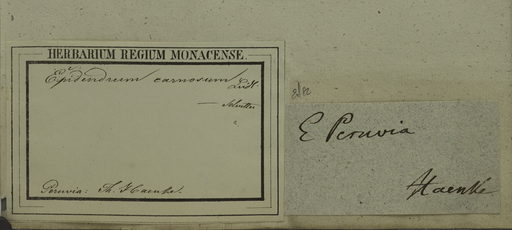 HERBARIUM REGIUM MONACENSE.
Epidendrum carnosum Lindl
Peruvia: Th. Haenke.
E Peruvia
Haenke